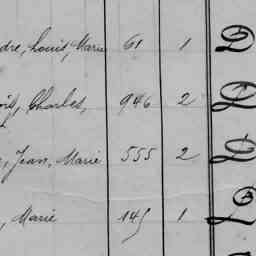 dre, Louis, Marie 61 1
Charles, 946 2
, Jean, Marie 555 2
, Marie 145 1